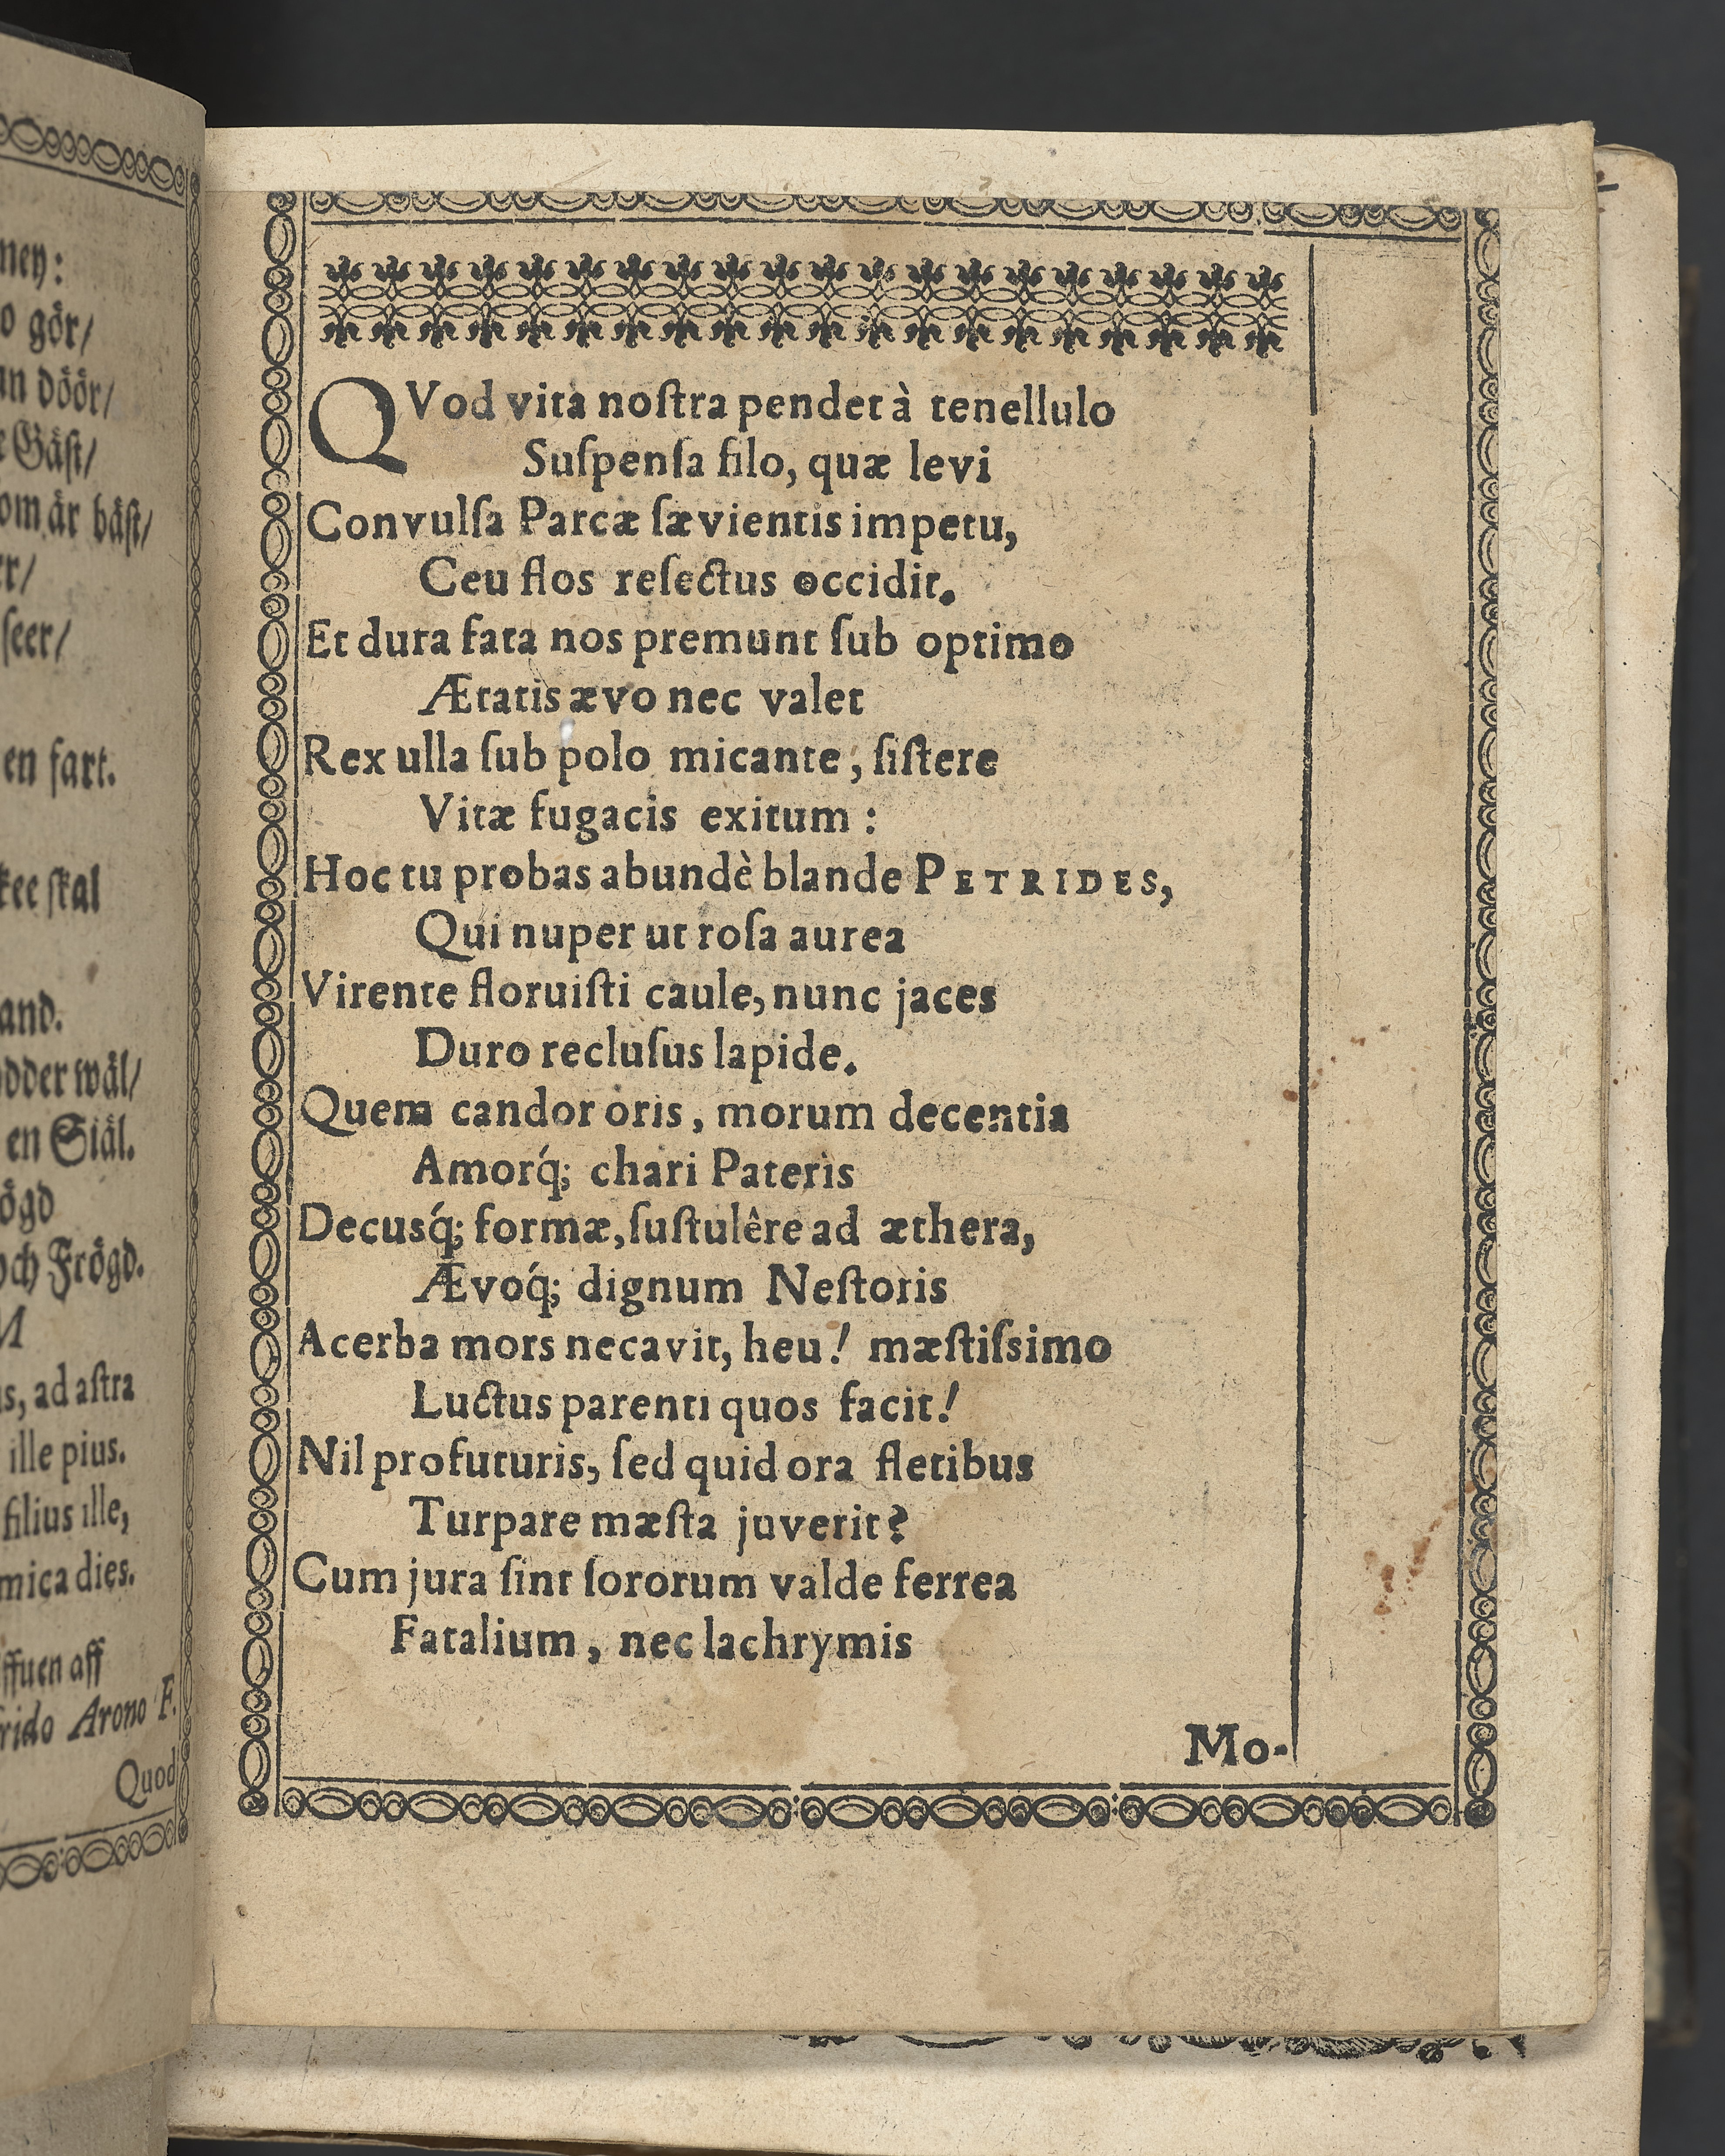 ney:
o gör/
an döör/
e Gäſt/
om är bäſt/
er/
ſeer/
en fart.
kee ſkal
and.
odder wäl/
en Siäl.
ögd
och Frögd.
M
s, ad aſtra
ille pius.
filius ille,
mica dies.
ffuen aff
frido Arono F.
Quod
QVod vita noſtra pendet à tenellulo
Suſpenſa filo, quæ levi
Convulſa Parcæ ſævientis impetu,
Ceu flos reſectus occidit.
Et dura fata nos premunt ſub optimo
Ætatis ævo nec valet
Rex ulla ſub polo micante, ſiſtere
Vitæ fugacis exitum :
Hoc tu probas abundè blande PETRIDES,
Qui nuper ut roſa aurea
Virente floruiſti caule, nunc jaces
Duro recluſus lapide.
Quem candor oris, morum decentia
Amorq́; chari Pateris
Decusq́; formæ, ſuſtulêre ad æthera,
Ævoq́; dignum Neſtoris
Acerba mors necavit, heu! mæſtiſsimo
Luctus parenti quos facit!
Nil profuturis, ſed quid ora fletibus
Turpare mæſta juverit?
Cum jura ſint ſororum valde ferrea
Fatalium, nec lachrymis
Mo-